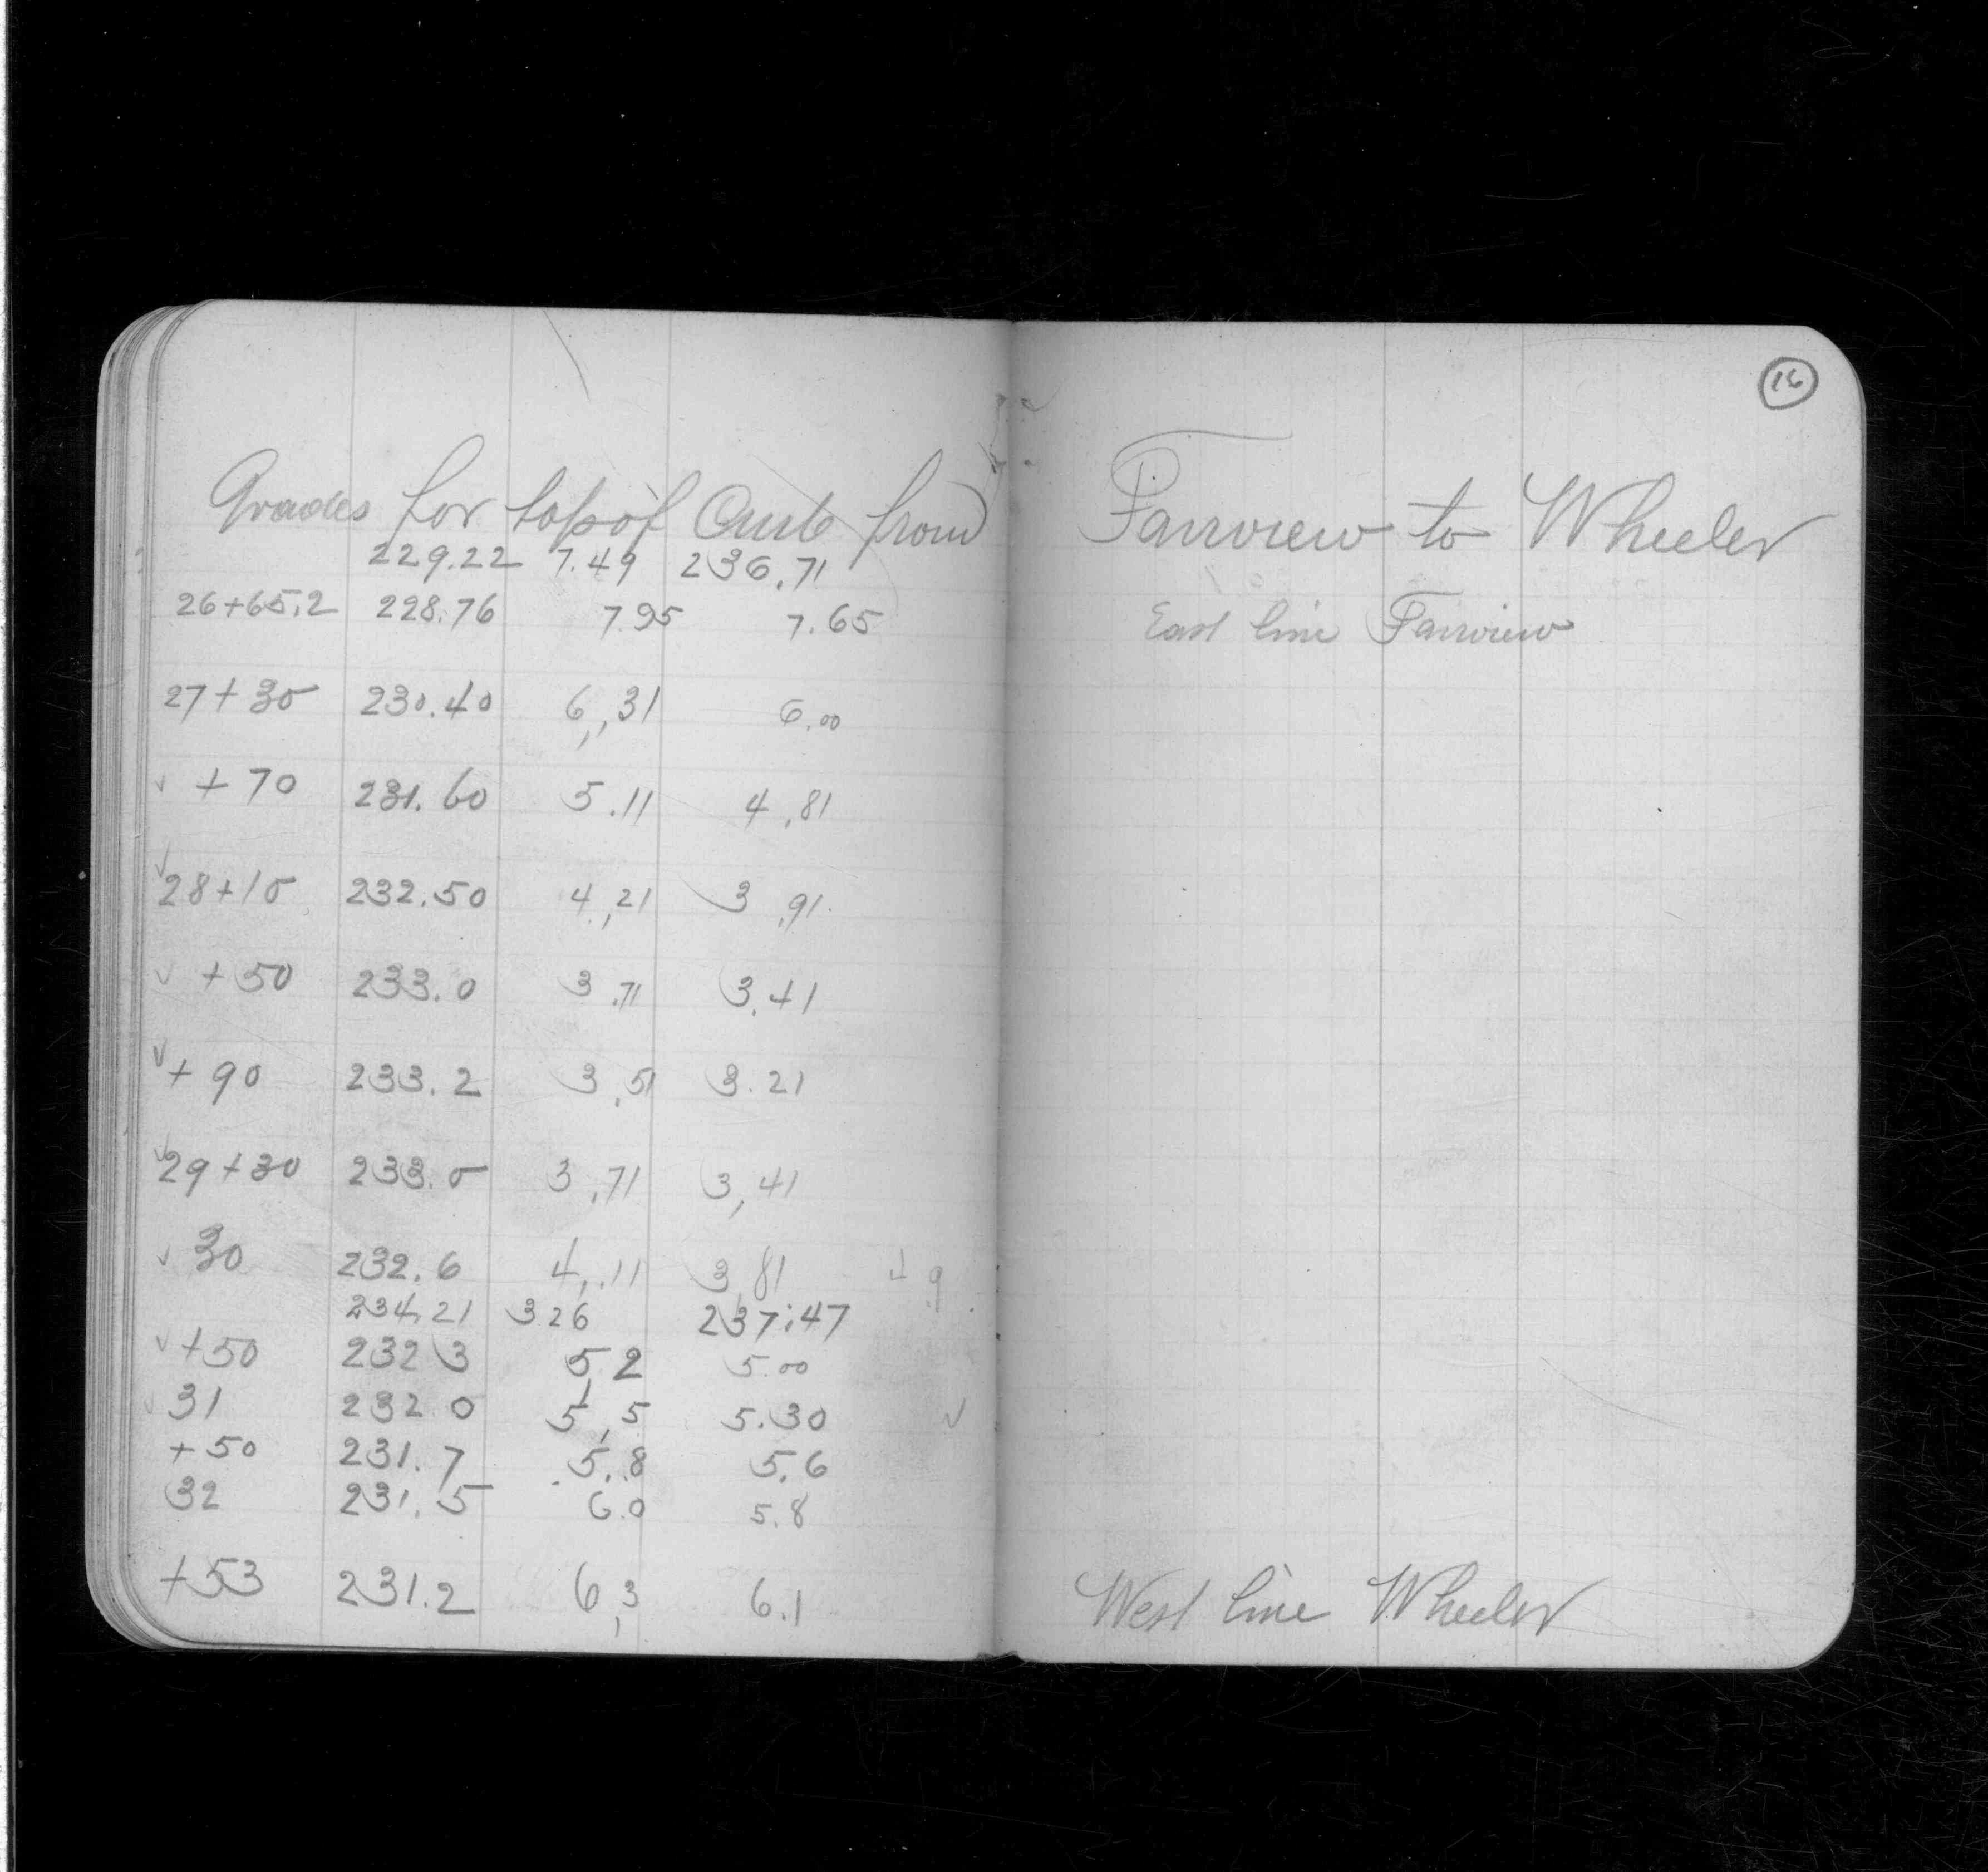 16
Grades for top of Curb from Fairview to Wheeler
229.22 7.49 236.71
26+65.2 228.76 7.95 7.65 East line Fairview
27+30 230.40 6.31 6.00
✓ +70 231.60 5.11 4.81
✓ 28+10 232.50 4.21 3.91
✓ +50 233.0 3.71 3.41
✓ +90 233.2 3.51 3.21
✓ 29+30 233.0 3.71 3.41
✓ 30 232.6 4.11 3.81
234.21 326 237.47
✓ +50 232 3 5.2 5.00
31 232.0 5.5 5.30 ✓
+50 231.7 5.8 5.6
32 231.5 6.0 5.8
+53 231.2 6.3 6.1 West line Wheeler